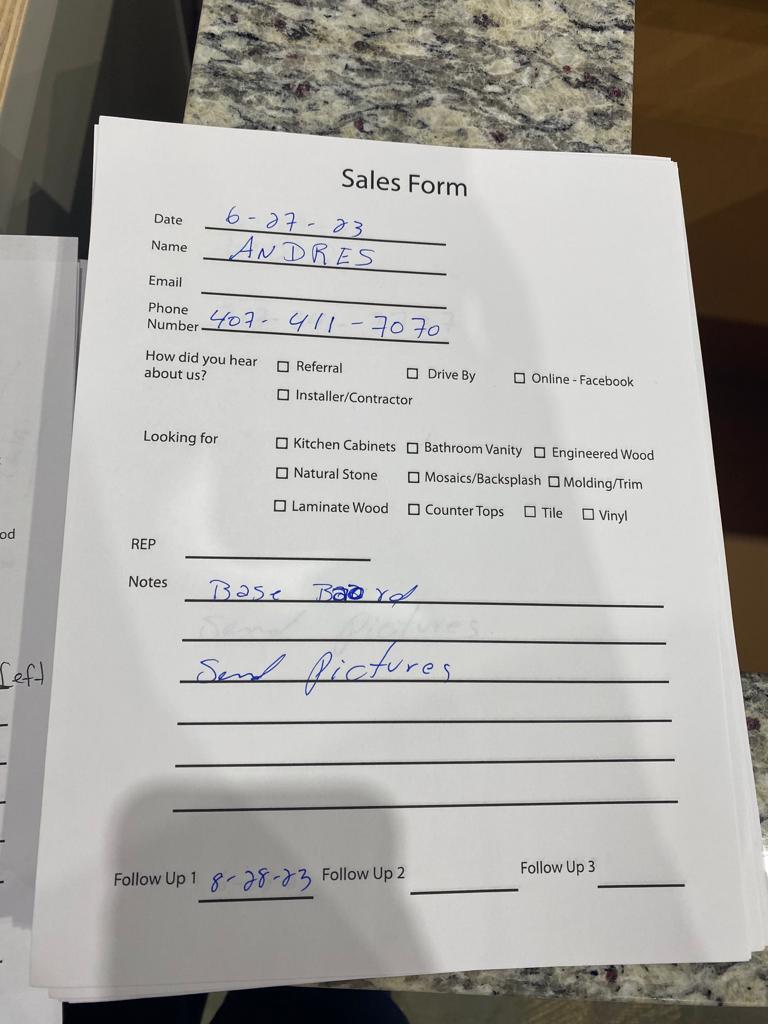 Sales Form
Date 6-27-23
Name ANDRES
Email
Phone
Number 407-411-7070
How did you hear
about us?
☐ Referral ☐ Drive By ☐ Online - Facebook
☐ Installer/Contractor
Looking for
☐ Kitchen Cabinets ☐ Bathroom Vanity ☐ Engineered Wood
☐ Natural Stone ☐ Mosaics/Backsplash ☐ Molding/Trim
☐ Laminate Wood ☐ Counter Tops ☐ Tile ☐ Vinyl
REP
Notes Base Baord
Send Pictures.
Send Pictures
Follow Up 1 8-28-23 Follow Up 2 Follow Up 3
od
Left